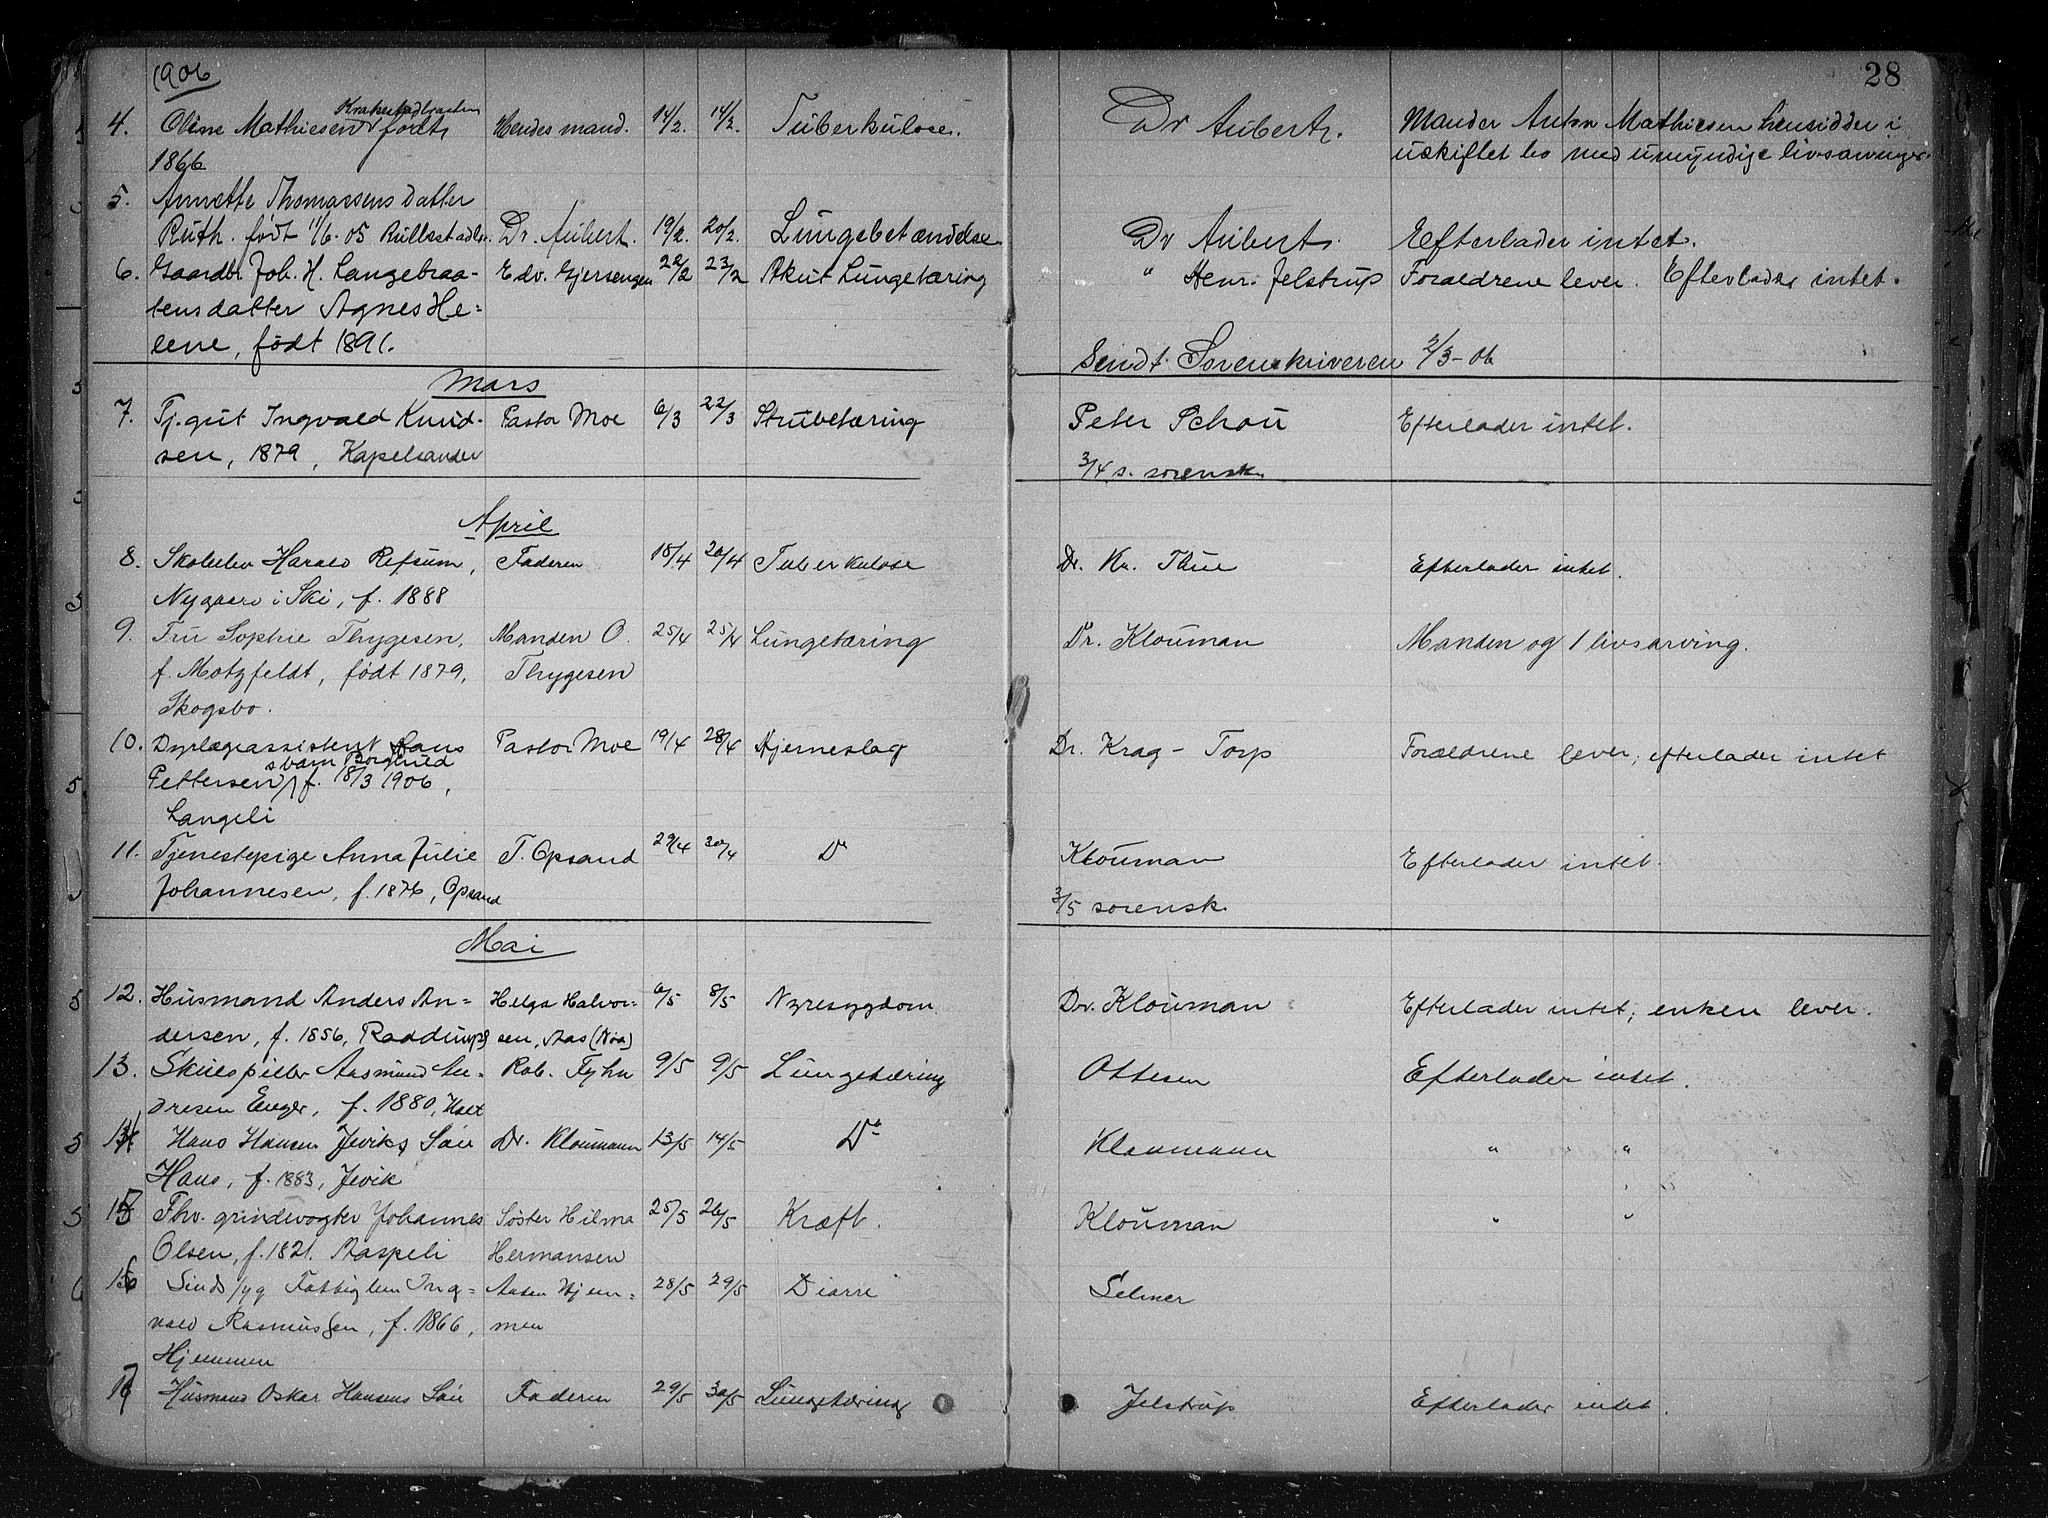 1906
28
Krakestadbraaten
4. Oline Mathiesen født Hendes mand. 14/2. 14/2. Tuberkulose. Dr Aubert. Manden Anton Mathiesen hensidder i
1866 uskiftet bo med umyndige livsarvinger.
5. Annette Thomassens datter
Ruth. født 11/6. 05 Dr. Aubert. 19/2. 20/2. Lungebetændelse. Dr Aubert. Efterlader intet.
6. Gaardbr. Joh. H. Langebraa- Edv. Gjersengen 22/2 23/2 Akut Lungetæring " Henr. Jelstrup Forældrene lever. Efterlades intet.
tens datter Agnes He-
lene, født 1891.
Sendt Sorenskriveren 2/3-06
Mars
7. Tj.gut Ingvald Knud- Pastor Moe 6/3 22/3 Strubetæring Peter Schou Efterlader intet.
sen, 1879, Kapelsanden
3/4 s. sorensk.
April
8. Skoleelev Harald Refsum, Faderen 18/4 20/4 Tuberkulose Dr. Kr. Thue Efterlader intet.
Nygaard i Ski, f. 1888
9. Fru Sophie Thygesen, Manden O. 25/4 25/4 Lungetæring Dr. Klouman Manden og 1 livsarving.
f. Motzfeldt, født 1879, Thygesen
Skogsbo.
10. Dyrlægeassistent Hans Pastor Moe 19/4 28/4 Hjerneslag Dr. Krag-Torp Forældrene lever; efterlader intet
s barn Borghild
Pettersen, f. 18/3 1906,
Langeli
11. Tjenestepige Anna Julie T. Opsand 29/4 30/4 Do Klouman Efterlader intet.
Johannesen, f. 1876, Opsand
3/5 sorensk.
Mai
12. Husmand Anders An- Helga Halvor- 6/5 8/5 Nyresygdom Dr. Klouman Efterlader intet; enken lever.
dersen, f. 1856, sen, Aas (Noa)
13. Skuespiller Aasmund An- Rob. Fyhn 9/5 9/5 Lungetæring Ottesen Efterlader intet.
dresen Enger, f. 1880, Holt
14 Hans Hansen Jeviks Søn Dr. Kloumann 13/5 14/5 Do Kloumann " "
Hans, f. 1883, Jevik
15 Fhv. grindvogter Johannes Søster Hilma 25/5 26/5 Kræft. Klouman " "
Olsen, f. 1821. Raspeli Hermansen
16 Sindssyg Fattiglem Ing- Aasen Hjem- 28/5 29/5 Diarré Selmer
vald Rasmussen, f. 1866, men
Hjemmen
17 Husmand Oskar Hansens Søn Faderen 29/5 30/5 Lungetæring Jelstrup Efterlader intet.